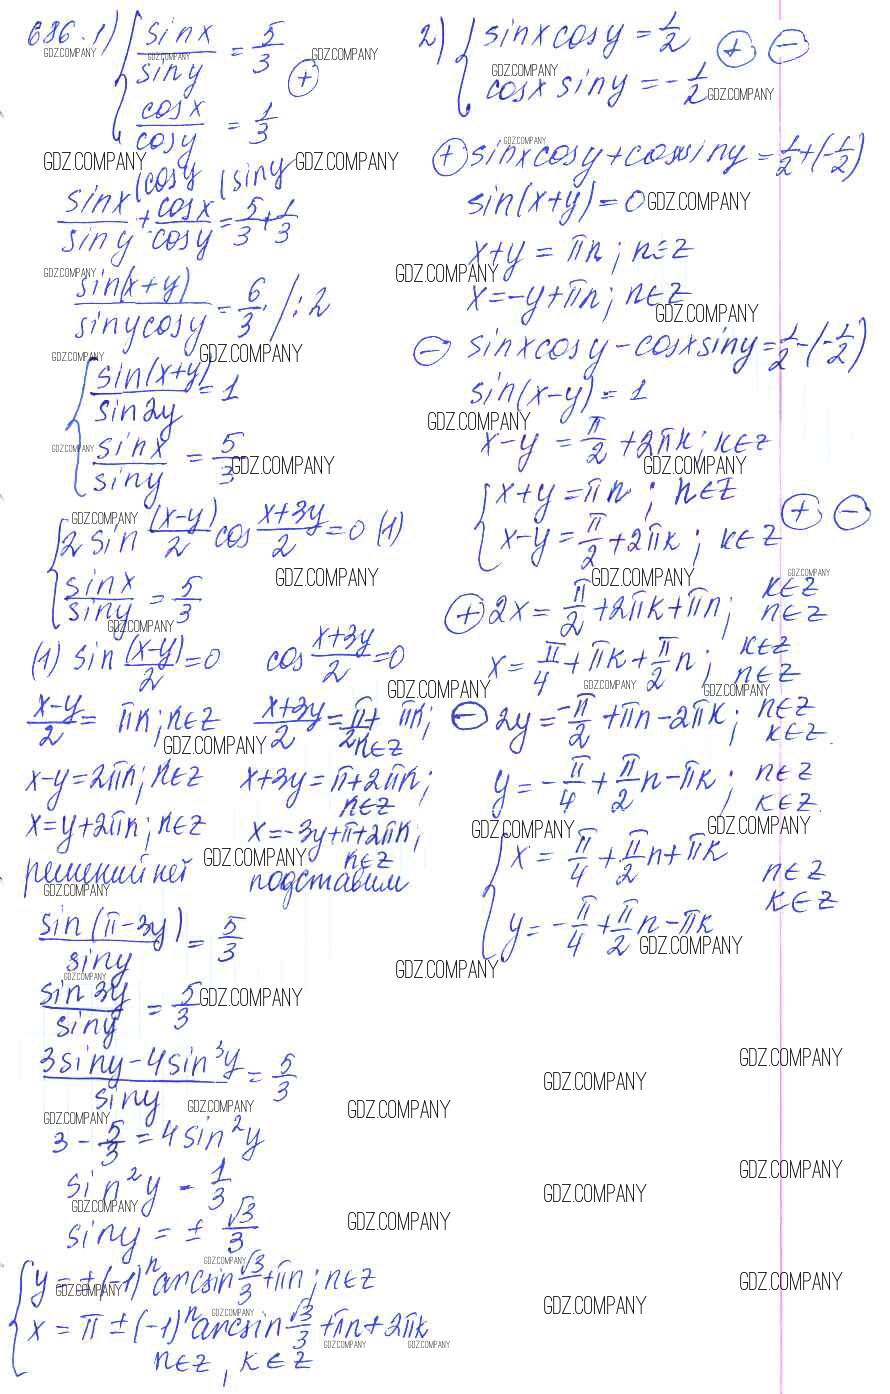 686. 1) { sinx/siny = 5/3
cosx/cosy = 1/3 (+)
sinx/siny (cosy + cosx/cosy (siny = 5/3 + 1/3
sin(x+y)/sinycosy = 6/3 /:2
{ sin(x+y)/sin2y = 1
sinx/siny = 5/3
{ 2 sin (x-y)/2 cos x+3y/2 = 0 (1)
sinx/siny = 5/3
(1) sin (x-y)/2 = 0 cos x+3y/2 = 0
x-y/2 = πn; n∈Z x+3y/2 = π/2 + πn; n∈Z
x-y = 2πn; n∈Z x+3y = π+2πn; n∈Z
x = y+2πn; n∈Z x = -3y+π+2πn; n∈Z
решений нет подставим
sin(π-3y)/siny = 5/3
sin3y/siny = 5/3
3siny - 4sin³y/siny = 5/3
3 - 5/3 = 4sin²y
sin²y = 1/3
siny = ± √3/3
{ y = ±(-1)ⁿ arcsin √3/3 + πn; n∈Z
x = π ± (-1)ⁿ arcsin √3/3 + πn + 2πk
n∈Z, k∈Z
2) { sinxcosy = 1/2
cosx siny = -1/2 (+) (-)
(+) sinxcosy + cosxsiny = 1/2 + (-1/2)
sin(x+y) = 0
x+y = πn; n∈Z
x = -y+πn; n∈Z
(-) sinxcosy - cosxsiny = 1/2 - (-1/2)
sin(x-y) = 1
x-y = π/2 + 2πk; k∈Z
{ x+y = πn; n∈Z
x-y = π/2 + 2πk; k∈Z (+) (-)
(+) 2x = π/2 + 2πk + πn; k∈Z n∈Z
x = π/4 + πk + π/2 n; k∈Z n∈Z
(-) 2y = -π/2 + πn - 2πk; n∈Z k∈Z.
y = -π/4 + π/2 n - πk; n∈Z k∈Z.
{ x = π/4 + π/2 n + πk
y = -π/4 + π/2 n - πk n∈Z k∈Z
GDZ.COMPANY